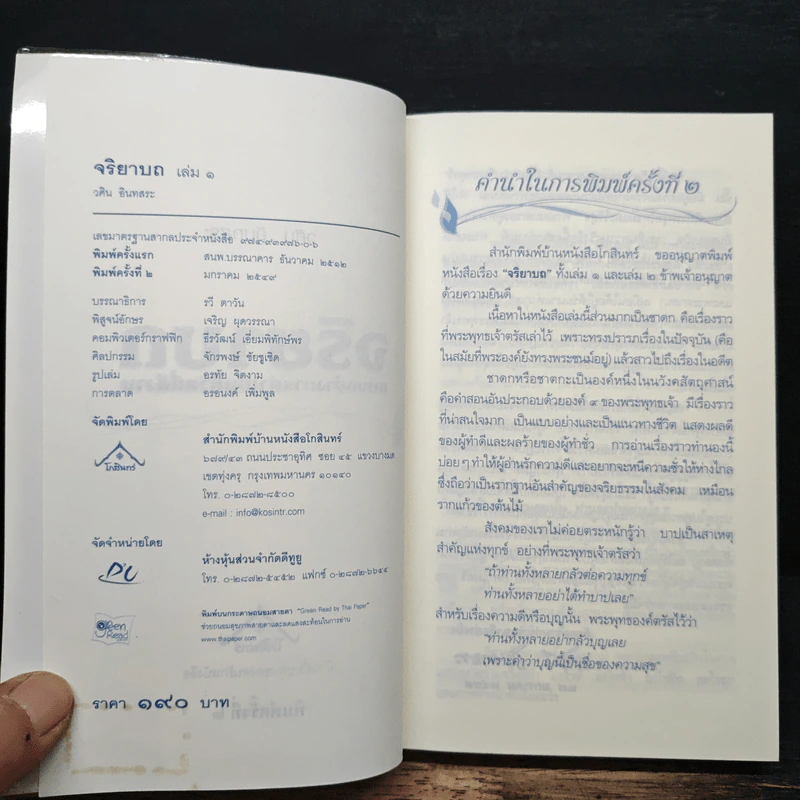 จริยาบถ เล่ม ๑
วศิน อินทสระ
เลขมาตรฐานสากลประจำหนังสือ ๙๗๔-๙๓๙๗๖-๐-๖
พิมพ์ครั้งแรก สนพ.บรรณาคาร ธันวาคม ๒๕๑๒
พิมพ์ครั้งที่ ๒ มกราคม ๒๕๔๙
บรรณาธิการ รวี ตาวัน
พิสูจน์อักษร เจริญ ผุดวรรณา
คอมพิวเตอร์กราฟฟิก ธีรวัฒน์ เอี่ยมพิทักษ์พร
ศิลปกรรม จักรพงษ์ ชัยซูเชิด
รูปเล่ม อรทัย จิตงาม
การตลาด อรอนงค์ เพิ่มพูล
จัดพิมพ์โดย
โกสินทร์
สำนักพิมพ์บ้านหนังสือโกสินทร์
๖๗๙/๔๓ ถนนประชาอุทิศ ซอย ๔๕ แขวงบางมด
เขตทุ่งครุ กรุงเทพมหานคร ๑๐๑๔๐
โทร. ๐-๒๘๗๒-๘๕๐๐
e-mail : info@kosintr.com
จัดจำหน่ายโดย
D'U
ห้างหุ้นส่วนจำกัดดีทูยู
โทร. ๐-๒๘๗๒-๕๔๕๒ แฟกซ์ ๐-๒๘๗๒-๖๖๔๔
green Read
พิมพ์บนกระดาษถนอมสายตา "Green Read by Thai Paper"
ช่วยถนอมสุขภาพสายตาและลดแสงสะท้อนในการอ่าน
www.thaipaper.com
ราคา ๑๙๐ บาท
คำนำในการพิมพ์ครั้งที่ ๒
สำนักพิมพ์บ้านหนังสือโกสินทร์ ขออนุญาตพิมพ์
หนังสือเรื่อง "จริยาบถ" ทั้งเล่ม ๑ และเล่ม ๒ ข้าพเจ้าอนุญาต
ด้วยความยินดี
เนื้อหาในหนังสือเล่มนี้ส่วนมากเป็นชาดก คือเรื่องราว
ที่พระพุทธเจ้าตรัสเล่าไว้ เพราะทรงปรารภเรื่องในปัจจุบัน (คือ
ในสมัยที่พระองค์ยังทรงพระชนม์อยู่) แล้วสาวไปถึงเรื่องในอดีต
ชาดกหรือชาตกะเป็นองค์หนึ่งในนวังคสัตถุศาสน์
คือคำสอนอันประกอบด้วยองค์ ๙ ของพระพุทธเจ้า มีเรื่องราว
ที่น่าสนใจมาก เป็นแบบอย่างและเป็นแนวทางชีวิต แสดงผลดี
ของผู้ทำดีและผลร้ายของผู้ทำชั่ว การอ่านเรื่องราวทำนองนี้
บ่อยๆ ทำให้ผู้อ่านรักความดีและอยากจะหนีความชั่วให้ห่างไกล
ซึ่งถือว่าเป็นรากฐานอันสำคัญของจริยธรรมในสังคม เหมือน
รากแก้วของต้นไม้
สังคมของเราไม่ค่อยตระหนักรู้ว่า บาปเป็นสาเหตุ
สำคัญแห่งทุกข์ อย่างที่พระพุทธเจ้าตรัสว่า
"ถ้าท่านทั้งหลายกลัวต่อความทุกข์
ท่านทั้งหลายอย่าได้ทำบาปเลย"
สำหรับเรื่องความดีหรือบุญนั้น พระพุทธองค์ตรัสไว้ว่า
"ท่านทั้งหลายอย่ากลัวบุญเลย
เพราะคำว่าบุญนี้เป็นชื่อของความสุข"